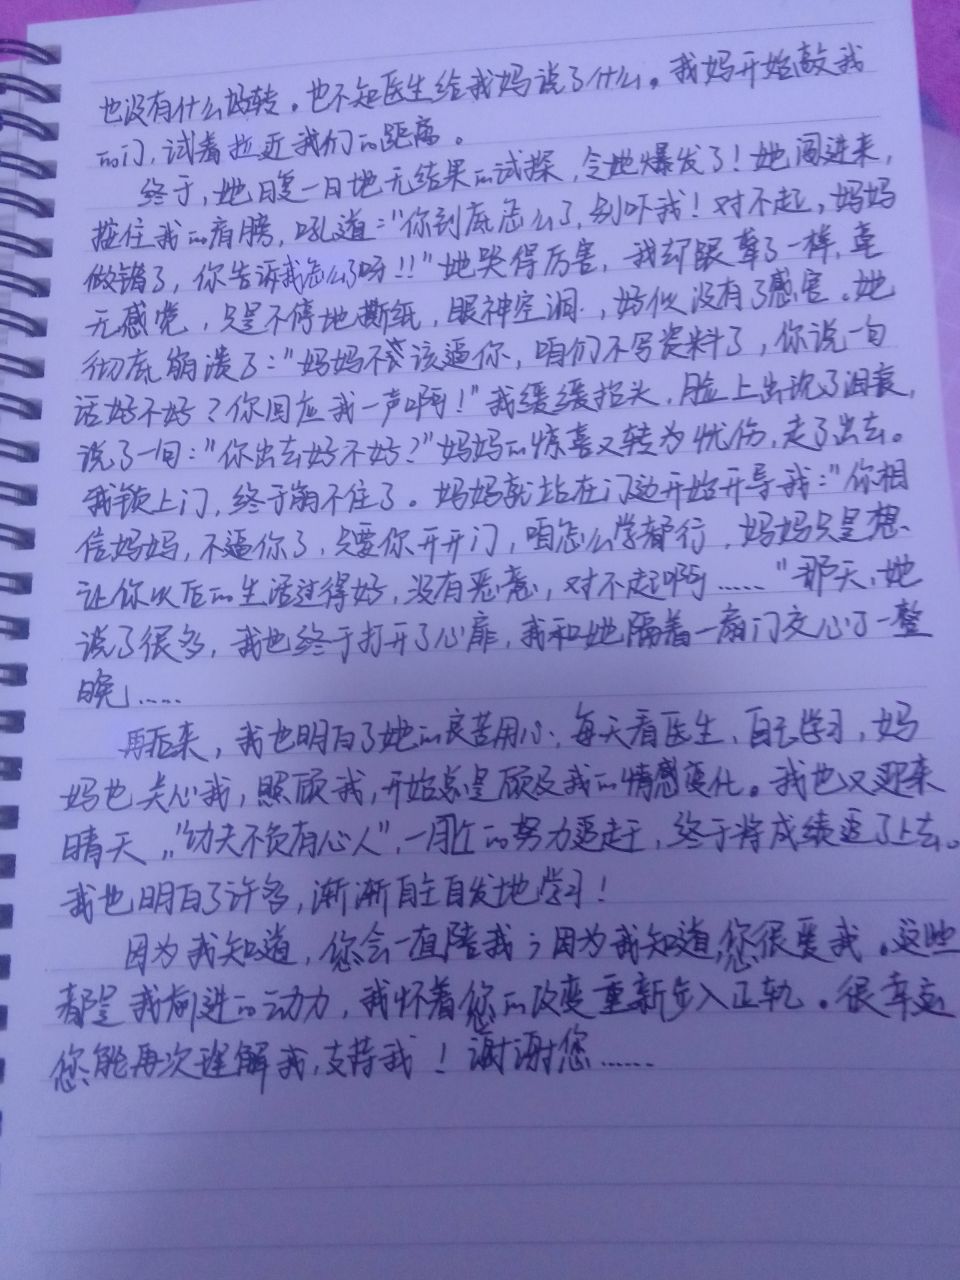 也没有什么好转。也不知医生给我妈说了什么。我妈开始敲我
的门，试着拉近我们的距离。
终于，她日复一日地无结果的试探，令她爆发了！她闯进来，
按住我的肩膀，吼道：“你到底怎么了，别吓我！对不起，妈妈
做错了，你告诉我怎么了呀！！”她哭得厉害，我却跟聋了一样，毫
无感觉，只是不停地撕纸，眼神空洞，好似没有了感官。她
彻底崩溃了：“妈妈不该逼你，咱们不写资料了，你说一句
话好不好？你回应我一声啊！”我缓缓抬头，脸上出现了泪痕，
说了一句：“你出去好不好？”妈妈的惊喜又转为忧伤，走了出去。
我锁上门，终于崩不住了。妈妈就站在门边开始开导我：“你相
信妈妈，不逼你了，只要你开开门，咱怎么学都行，妈妈只是想
让你以后的生活过得好，没有恶意，对不起啊……”那天，她
说了很多，我也终于打开了心扉，我和她隔着一扇门交心了一整
晚……
再后来，我也明白了她的良苦用心，每天看医生、自己学习，妈
妈也关心我，照顾我，开始总是顾及我的情感变化。我也又迎来
晴天，“功夫不负有心人”，一周的努力追赶，终于将成绩追了上去。
我也明白了许多，渐渐自主自发地学习！
因为我知道，您会一直陪我；因为我知道，您很爱我。这些
都是我前进的动力，我怀着您的改变重新步入正轨。很幸运
您能再次理解我，支持我！谢谢您……